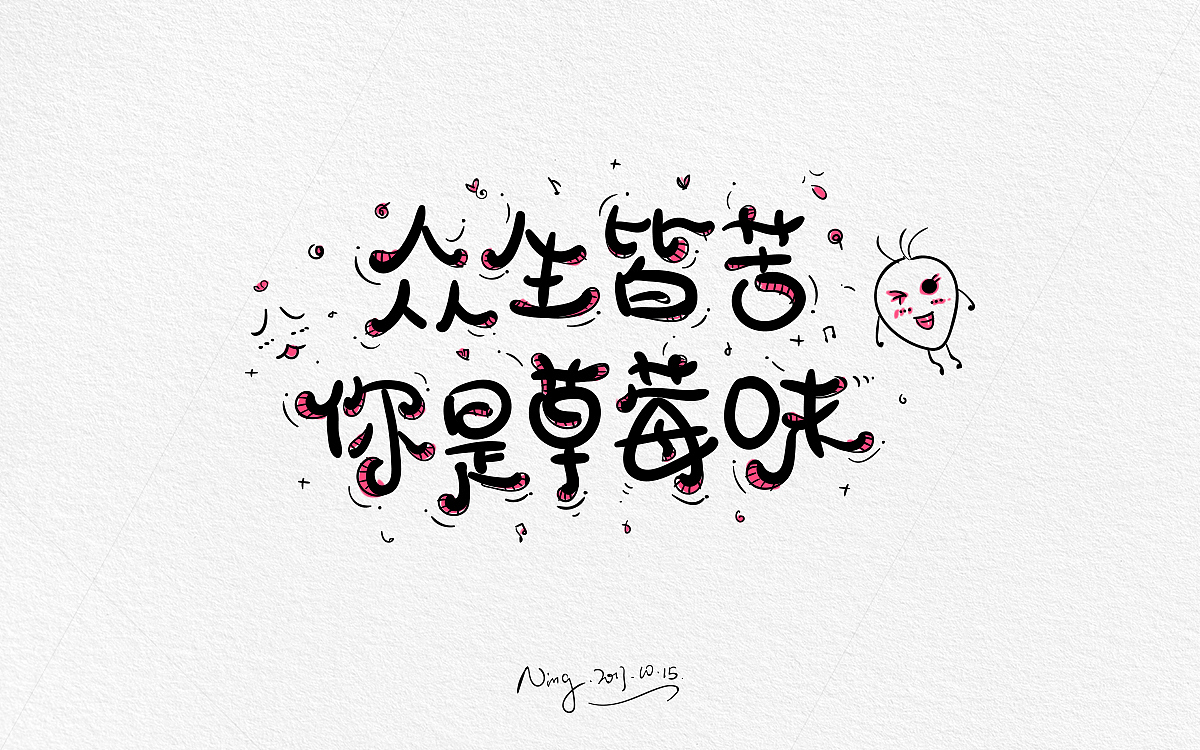 众生皆苦
你是草莓味
Ning.2017.10.15.